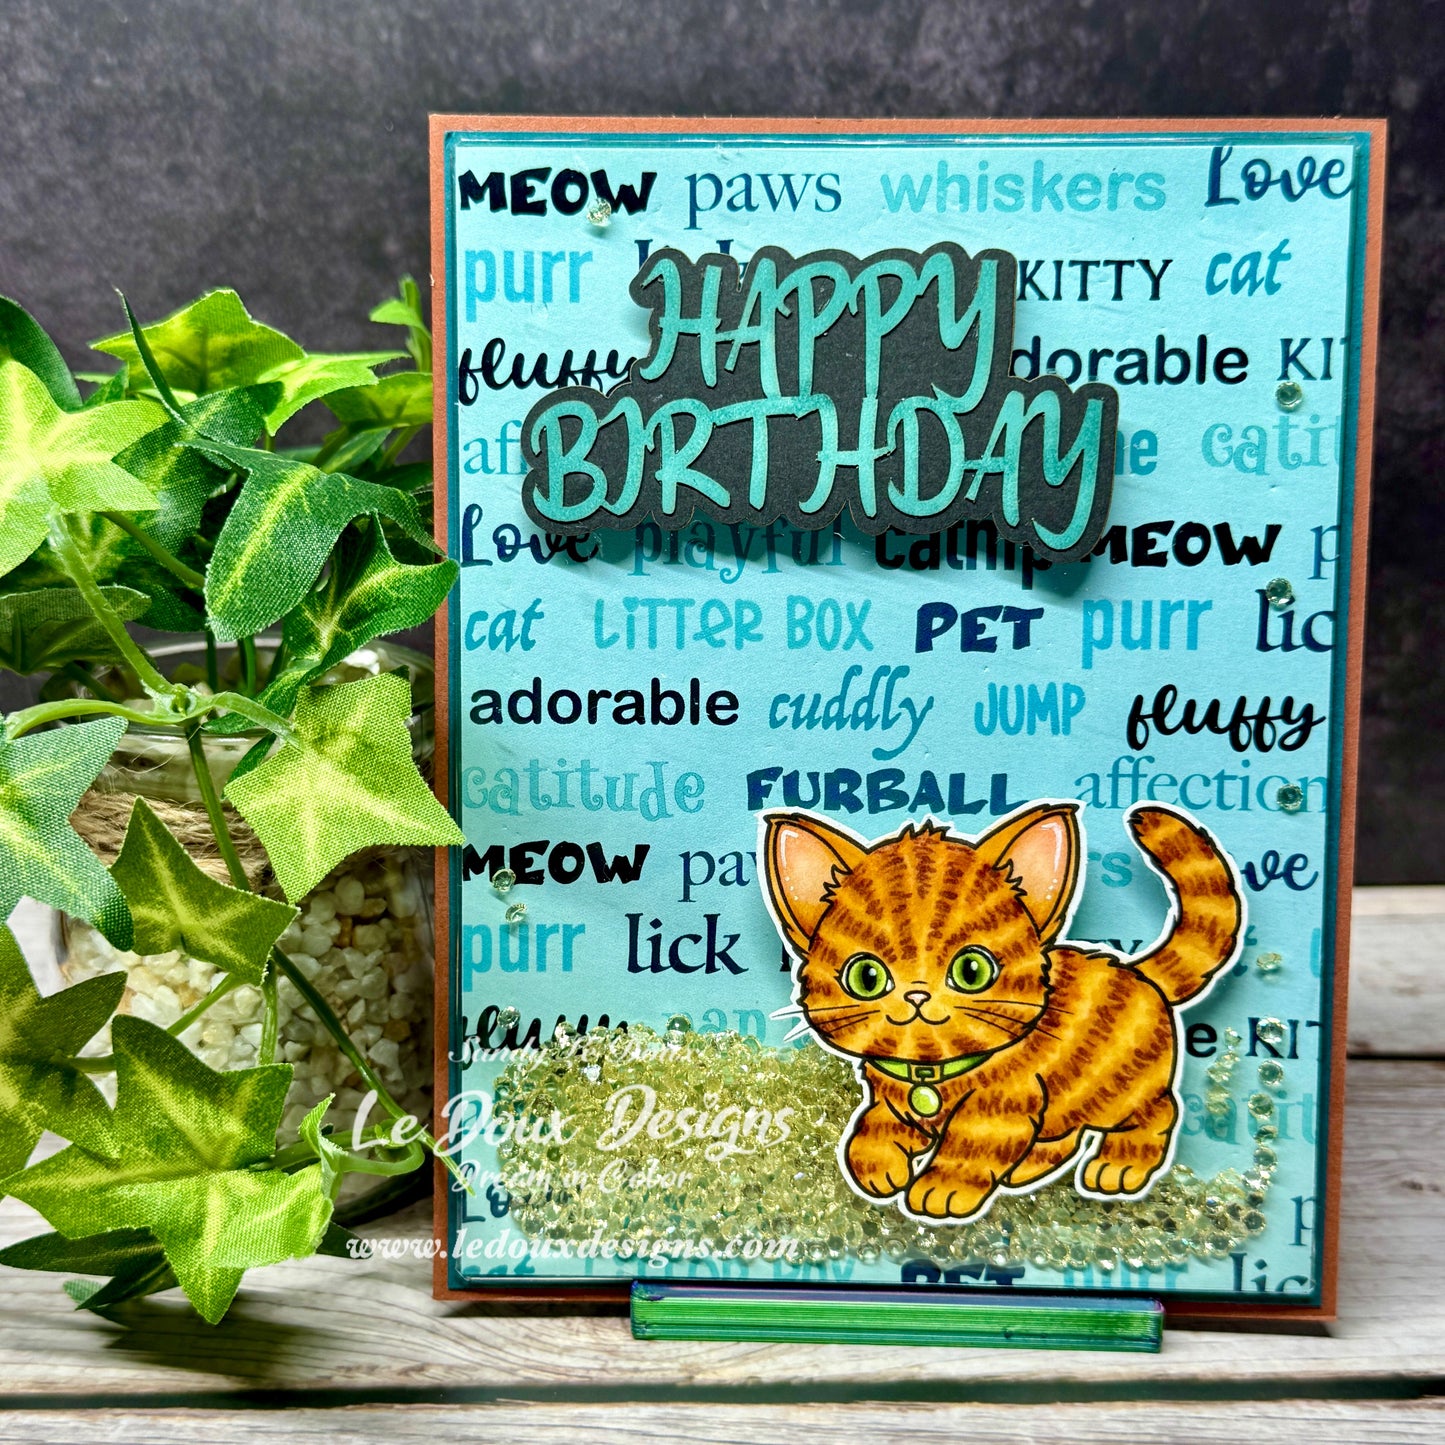 MEOW paws whiskers Love
purr KITTY cat
HAPPY
fluffy dorable KIT
BIRTHDAY
catit
Love playful catnip MEOW p
cat LITTER BOX PET purr lic
adorable cuddly JUMP fluffy
catitude FURBALL affection
MEOW pa ers ove
purr lick
fluffy nap e KIT
Sandy LeDoux
Le Doux Designs
catit
Dream in Color
Lo p
www.ledouxdesigns.com
LITTER BOX PET purr lic